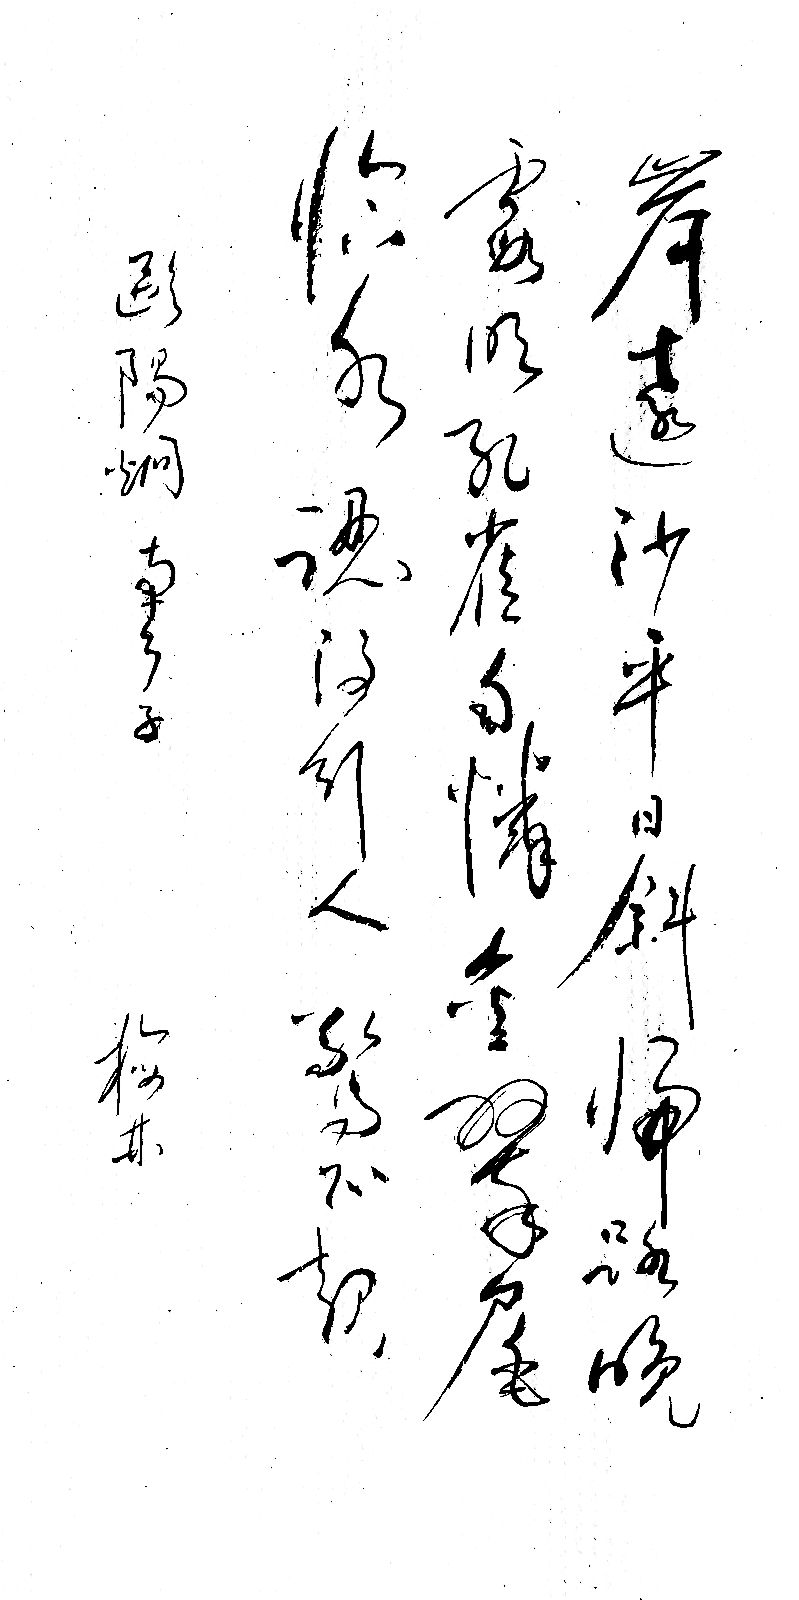 岸遠沙平日斜歸路晚
霞明孔雀自憐金翠尾
臨水認得行人驚不起
歐陽烱南鄉子